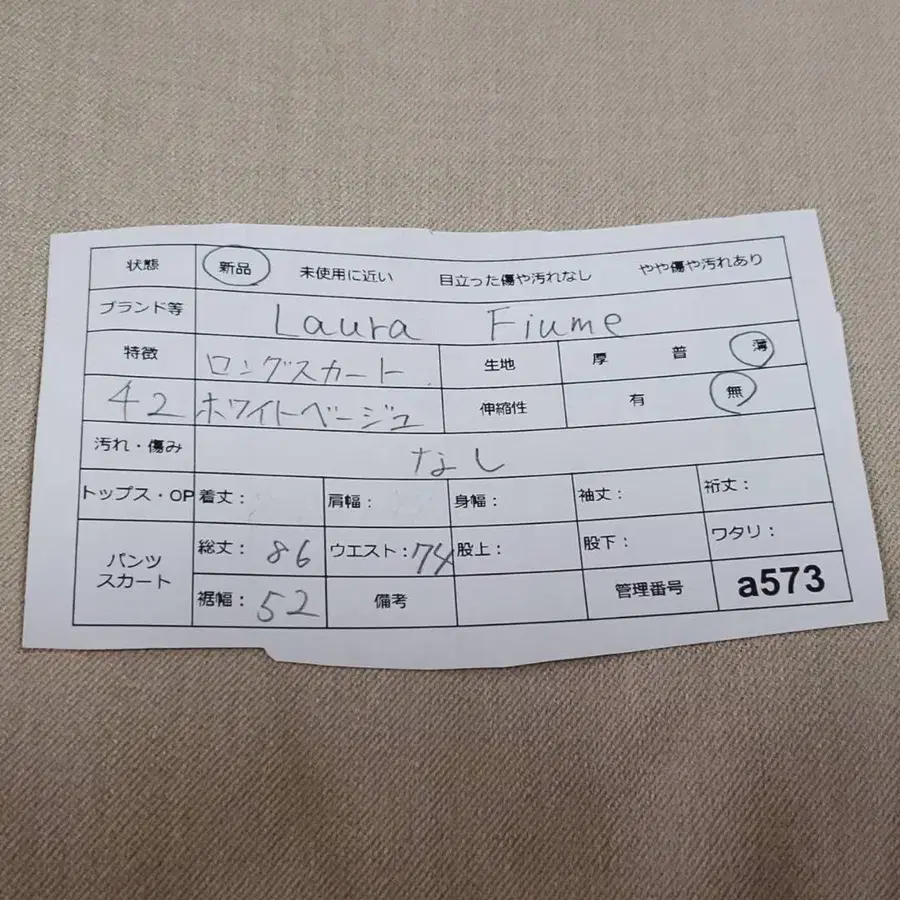 状態 新品 未使用に近い 目立った傷や汚れなし やや傷や汚れあり
ブランド等 Laura Fiume
特徴 ロングスカート 生地 厚 普 薄
42 ホワイトベージュ 伸縮性 有 無
汚れ・傷み なし
トップス・OP 着丈： 肩幅： 身幅： 袖丈： 裄丈：
パンツ スカート 総丈：86 ウエスト：74 股上： 股下： ワタリ：
裾幅：52 備考 管理番号 a573